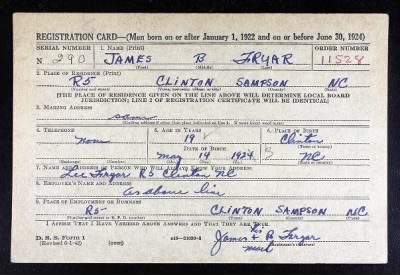 REGISTRATION CARD—(Men born on or after January 1, 1922 and on or before June 30, 1924)
SERIAL NUMBER 1. NAME (Print) ORDER NUMBER
N 290 JAMES B FRYAR 11528
(First) (Middle) (Last)
2. PLACE OF RESIDENCE (Print)
R5 CLINTON SAMPSON NC
(Number and street) (Town, township, village, or city) (County) (State)
[THE PLACE OF RESIDENCE GIVEN ON THE LINE ABOVE WILL DETERMINE LOCAL BOARD
JURISDICTION; LINE 2 OF REGISTRATION CERTIFICATE WILL BE IDENTICAL]
3. MAILING ADDRESS
same
[Mailing address if other than place indicated on line 2. If same insert word same]
4. TELEPHONE 5. AGE IN YEARS 6. PLACE OF BIRTH
none 19 Clinton
DATE OF BIRTH (Town or county)
May 14 1924 NC
(Exchange) (Number) (Mo.) (Day) (Yr.) (State or country)
7. NAME AND ADDRESS OF PERSON WHO WILL ALWAYS KNOW YOUR ADDRESS
Lee Fryar R5 Clinton NC
8. EMPLOYER'S NAME AND ADDRESS
as above line
9. PLACE OF EMPLOYMENT OR BUSINESS
R5 CLINTON SAMPSON NC
(Number and street or R. F. D. number) (Town) (County) (State)
I AFFIRM THAT I HAVE VERIFIED ABOVE ANSWERS AND THAT THEY ARE TRUE.
D. S. S. Form 1
(Revised 6-1-42)
his
James B Fryar
mark